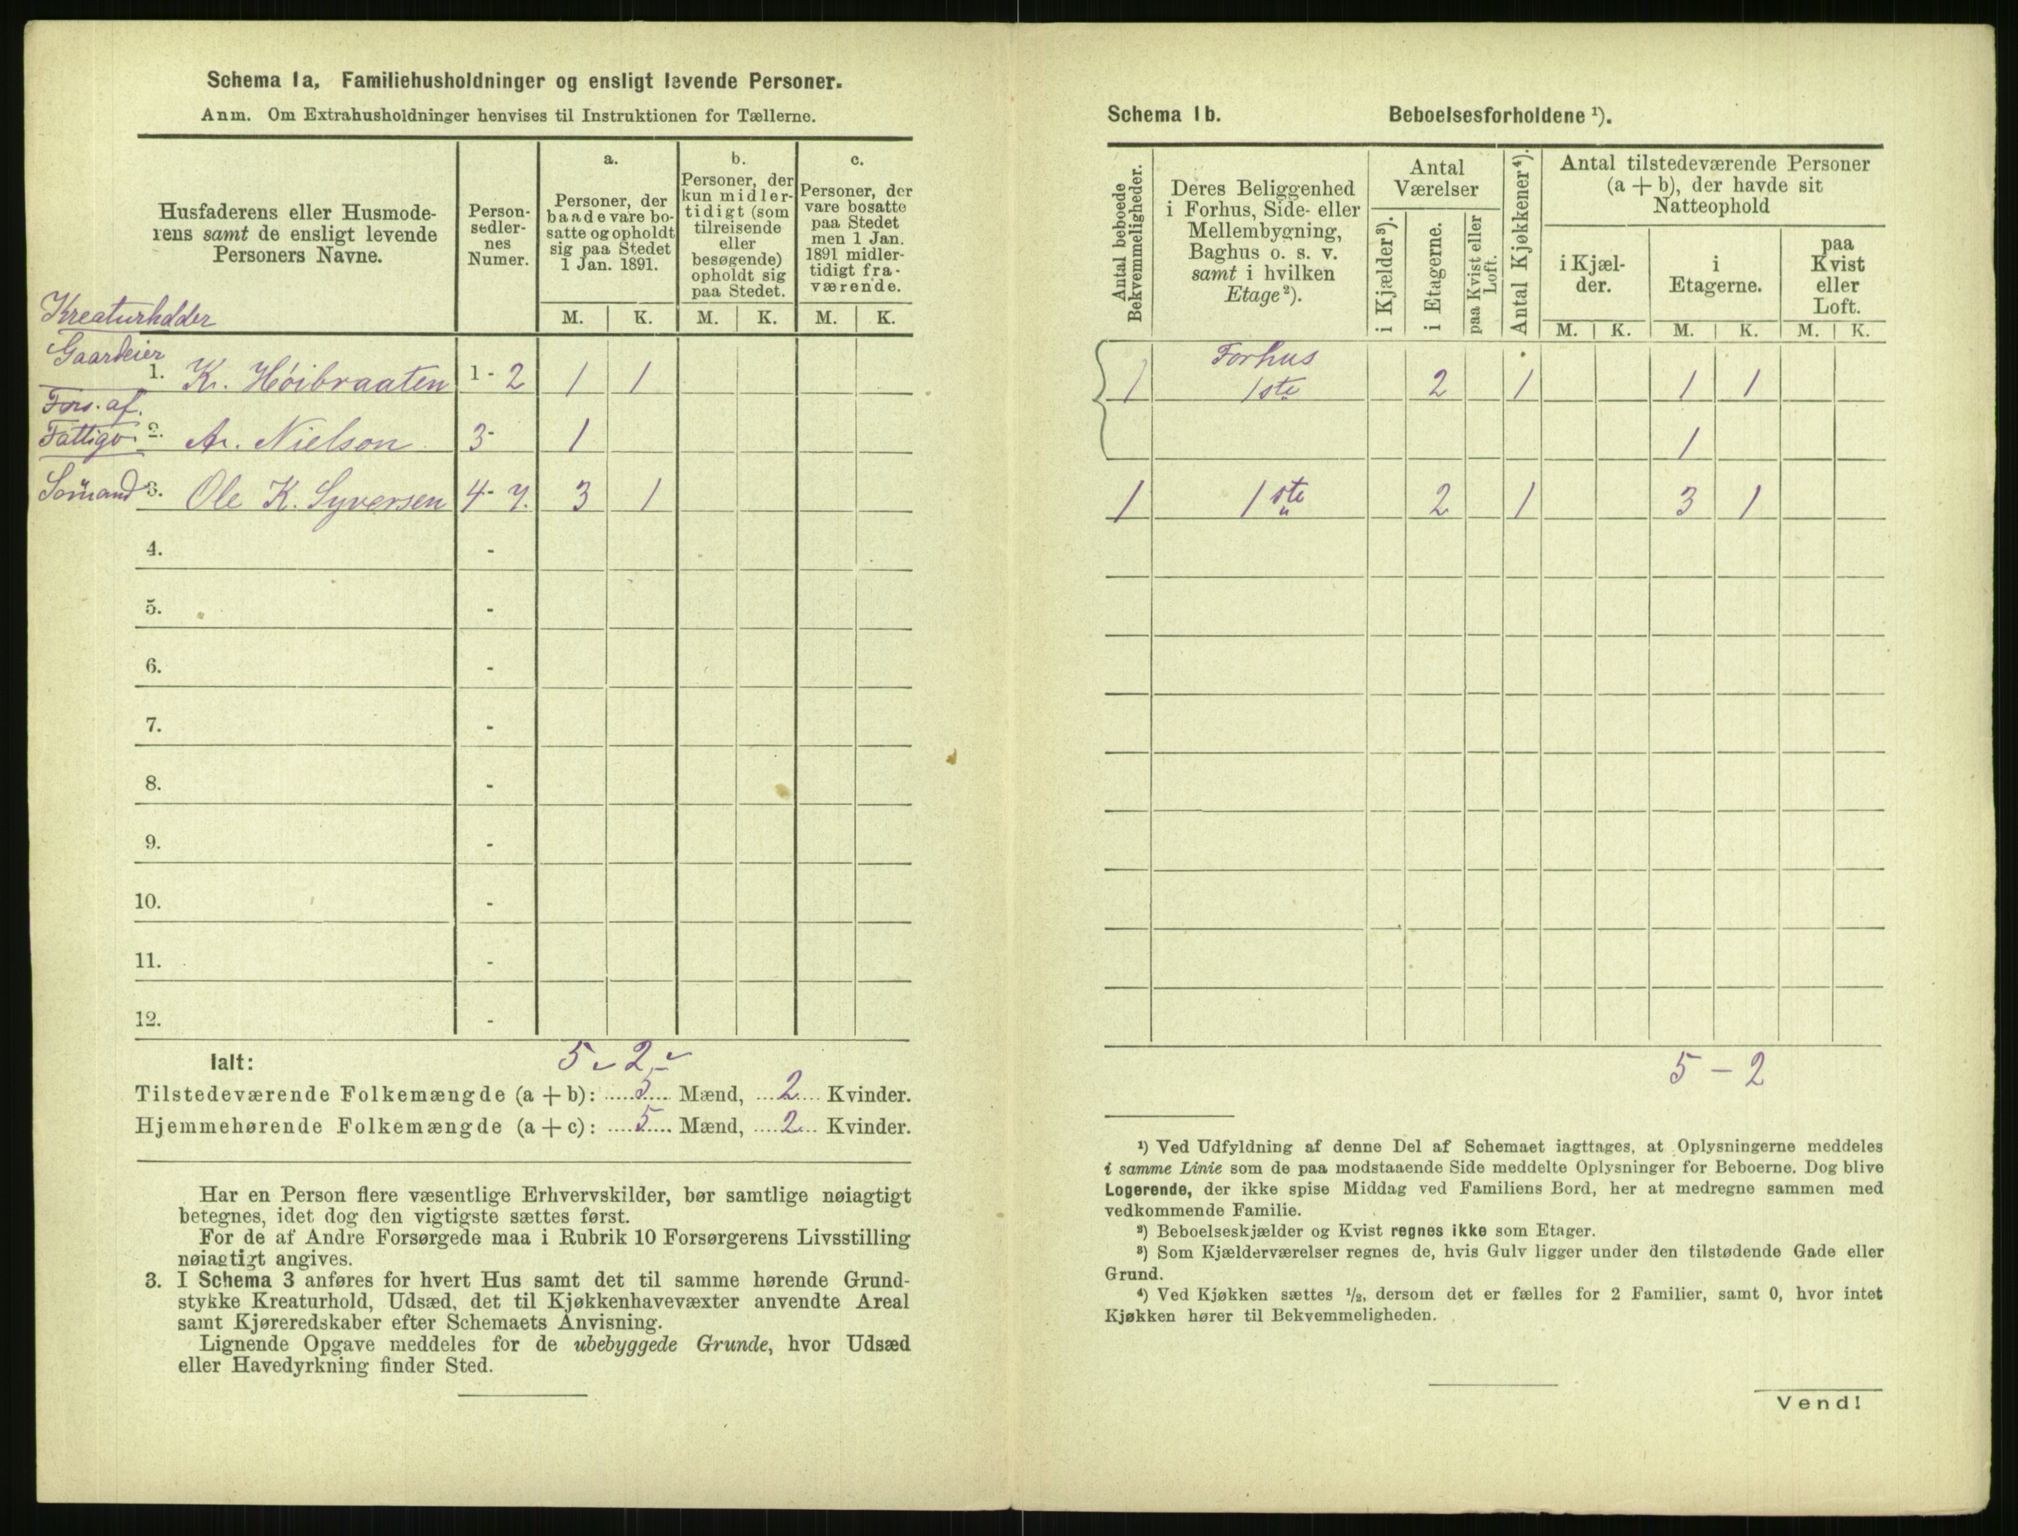 Schema 1a, Familiehusholdninger og ensligt levende Personer.
Anm. Om Extrahusholdninger henvises til Instruktionen for Tællerne.
Husfaderens eller Husmode-
rens samt de ensligt levende
Personers Navne.
Person-
sedler-
nes
Numer.
a.
Personer, der
baade vare bo-
satte og opholdt
sig paa Stedet
1 Jan. 1891.
b.
Personer, der
kun midler-
tidigt (som
tilreisende
eller
besøgende)
opholdt sig
paa Stedet.
c.
Personer, der
vare bosatte
paa Stedet
men 1 Jan.
1891 midler-
tidigt fra-
værende.
M. K. M. K. M. K.
Kreaturholder
Gaardeier
1. Kr. Høibraaten 1 - 2 1 1
Fors. af
Fattigv. 2. A. Nielson 3 - 1
Sømand 3. Ole K. Syversen 4 - 7. 3 1
4. -
5. -
6. -
7. -
8. -
9. -
10. -
11. -
12. -
Ialt: 5 2
Tilstedeværende Folkemængde (a + b): 5 Mænd, 2 Kvinder.
Hjemmehørende Folkemængde (a + c): 5 Mænd, 2 Kvinder.
Har en Person flere væsentlige Erhvervskilder, bør samtlige nøiagtigt
betegnes, idet dog den vigtigste sættes først.
For de af Andre Forsørgede maa i Rubrik 10 Forsørgerens Livsstilling
nøiagtigt angives.
3. I Schema 3 anføres for hvert Hus samt det til samme hørende Grund-
stykke Kreaturhold, Udsæd, det til Kjøkkenhavevæxter anvendte Areal
samt Kjøreredskaber efter Schemaets Anvisning.
Lignende Opgave meddeles for de ubebyggede Grunde, hvor Udsæd
eller Havedyrkning finder Sted.
Schema 1b. Beboelsesforholdene ¹).
Antal beboede
Bekvemmeligheder.
Deres Beliggenhed
i Forhus, Side- eller
Mellembygning,
Baghus o. s. v.
samt i hvilken
Etage²).
Antal
Værelser
i Kjælder³).
i Etagerne.
paa Kvist eller
Loft.
Antal Kjøkkener⁴).
Antal tilstedeværende Personer
(a + b), der havde sit
Natteophold
i Kjæl-
der.
i
Etagerne.
paa
Kvist
eller
Loft.
M. K. M. K. M. K.
Forhus
1 1ste 2 1 1 1
1
1 1ste 2 1 3 1
5 - 2
¹) Ved Udfyldning af denne Del af Schemaet iagttages, at Oplysningerne meddeles
i samme Linie som de paa modstaaende Side meddelte Oplysninger for Beboerne. Dog blive
Logerende, der ikke spise Middag ved Familiens Bord, her at medregne sammen med
vedkommende Familie.
²) Beboelseskjælder og Kvist regnes ikke som Etager.
³) Som Kjælderværelser regnes de, hvis Gulv ligger under den tilstødende Gade eller
Grund.
⁴) Ved Kjøkken sættes ½, dersom det er fælles for 2 Familier, samt 0, hvor intet
Kjøkken hører til Bekvemmeligheden.
Vend!